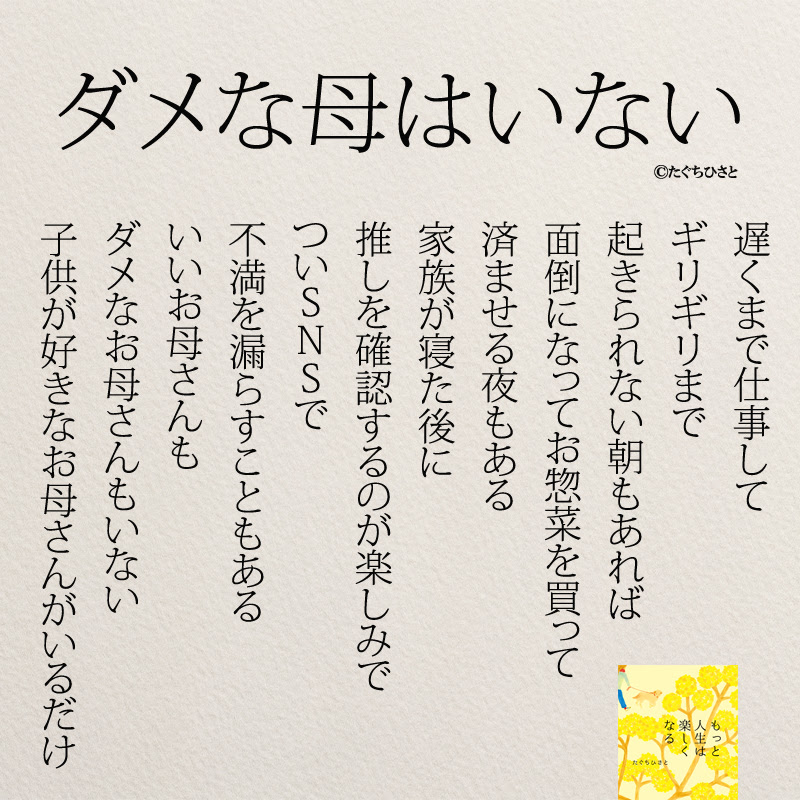 ダメな母はいない
©たぐちひさと
遅くまで仕事して
ギリギリまで
起きられない朝もあれば
面倒になってお惣菜を買って
済ませる夜もある
家族が寝た後に
推しを確認するのが楽しみで
ついSNSで
不満を漏らすこともある
いいお母さんも
ダメなお母さんもいない
子供が好きなお母さんがいるだけ
もっと
人生は
楽しく
なる
たぐちひさと